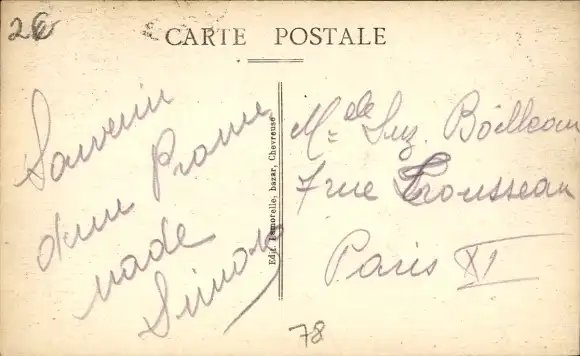 26
CARTE POSTALE
Souvenir
d'une Prome
nade
Simone
Edit. Lamorelle, bazar, Chevreuse
Melle Suz. Boilleau
7 rue Trousseau
Paris XI
78